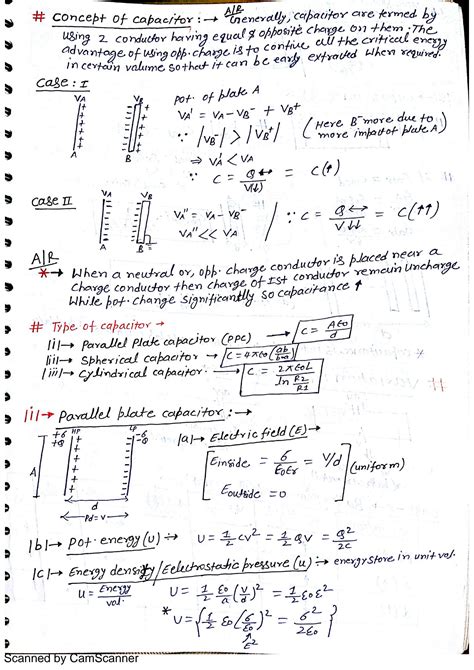 # Concept of capacitor :→ A/R Generally, capacitor are termed by
using 2 conductor having equal & opposite charge on them. The
advantage of using opp. charge is to contive all the critical energy
in certain volume so that it can be early extracted when required.
Case : I
VA VB
A B
pot. of plate A
VA' = VA - VB⁻ + VB⁺
∵ |VB⁻| > |VB⁺| (Here B⁻ more due to more impact of plate A)
⇒ VA' < VA
∵ C = Q↔/V↓↓ = C(↑)
Case II
VA VB
A B
VA'' = VA - VB⁻
VA'' << VA
∵ C = Q↔/V↓↓ = C(↑↑)
A|R
*→ When a neutral or, opp. charge conductor is placed near a
charge conductor then charge of Ist conductor remain uncharge
while pot. change significantly so capacitance ↑
# Type of capacitor →
|i|→ Parallel plate capacitor (PPC) → C = Aε0/d
|ii|→ Spherical capacitor → C = 4πε0(ab/b-a)
|iii|→ Cylindrical capacitor → C = 2πε0L/ln R2/R1
|i|→ Parallel plate capacitor :→
+σ HP LP -σ
+Q -Q
A
d
Pd = V
|a|→ Electric field (E)→
Einside = σ/ε0εr = V/d (uniform)
Eoutside = 0
|b|→ pot. energy (U) ÷→ U = 1/2 CV² = 1/2 QV = Q²/2C
|c|→ Energy density/Eelectrostatic pressure (u) :→ energy store in unit vol.
u = Energy/vol. U = 1/2 ε0/a (V/d)² = 1/2 ε0E²
* U = {1/2 ε0(σ/ε0)² = σ²/2ε0}
E²
Scanned by CamScanner